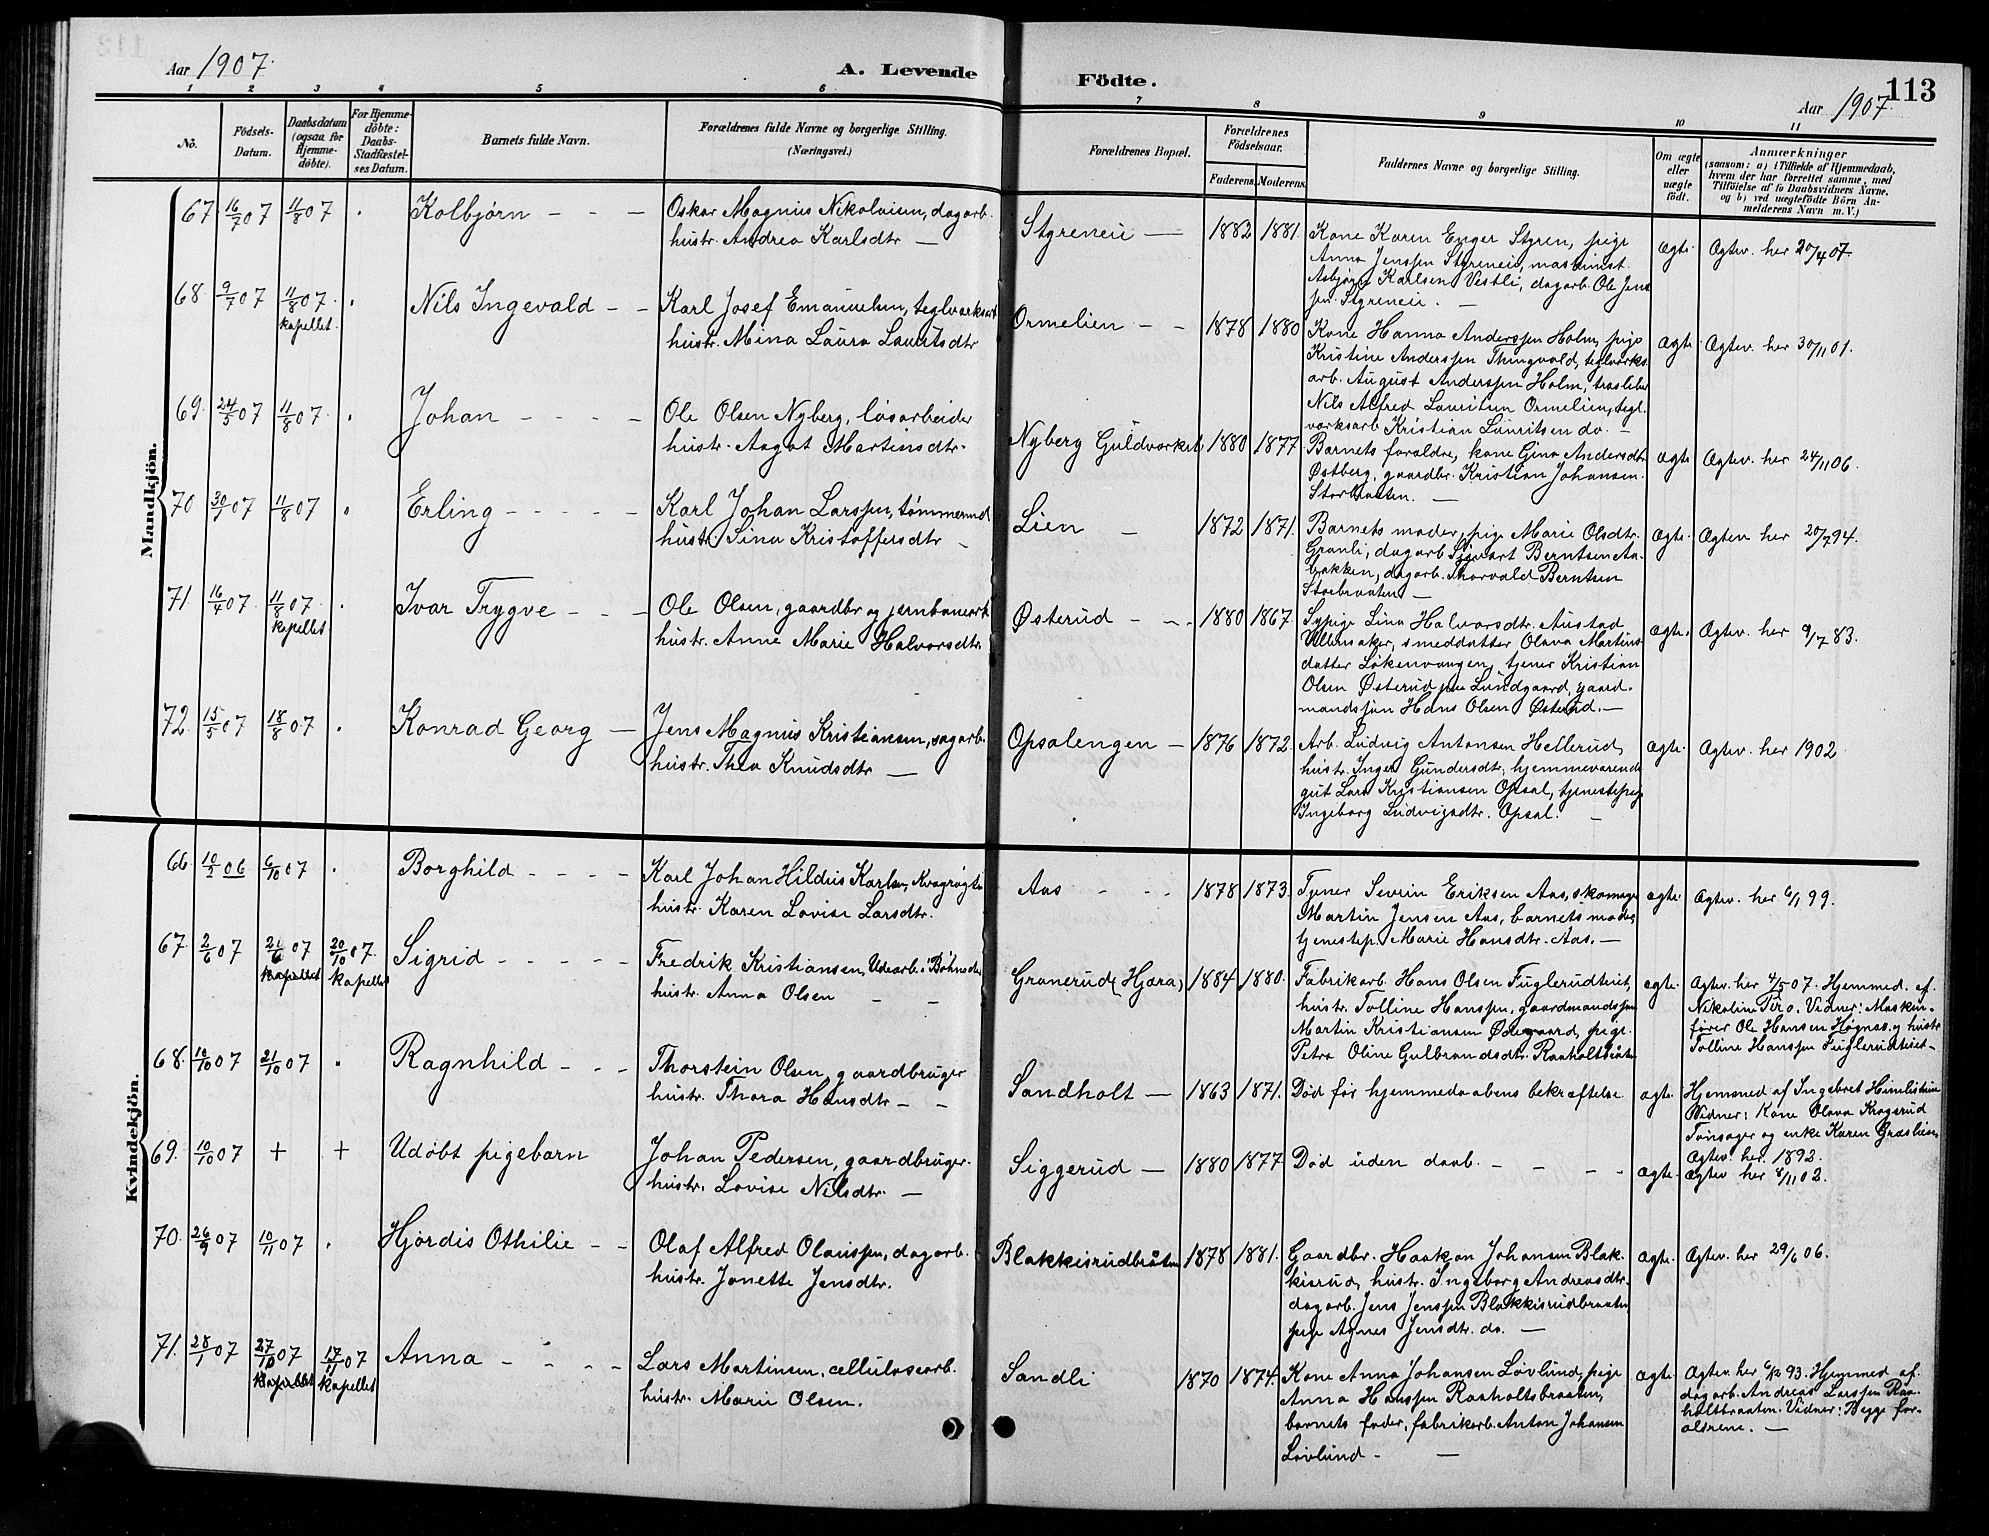 Aar 1907.
A. Levende Födte.
Aar 1907.
113
1 2 3 4 5 6 7 8 9 10 11
No.
Födsels-Datum.
Daabsdatum (ogsaa for Hjemme-döbte).
For Hjemme-döbte: Daabs-Stadfæstel-ses Datum.
Barnets fulde Navn.
Forældrenes fulde Navne og borgerlige Stilling. (Næringsvei.)
Forældrenes Bopæl.
Forældrenes Födselsaar.
Faderens. Moderens.
Faddernes Navne og borgerlige Stilling.
Om ægte eller uægte födt.
Anmærkninger
(saasom: a) i Tilfælde af Hjemmedaab,
hvem der har forrettet samme, med
Tilföielse af to Daabsvidners Navne,
og b) ved uægtefödte Börn An-
melderens Navn m. V.)
Mandkjön.
67 16/7 07 11/8 07 Kolbjørn - - -
Oskar Magnus Nikolaisen, dagarb.
hustr. Andrea Karlsdtr —
Styreneie — 1882 1881.
Kone Karen Enger Styren, pige
Anna Jenssen Styreneie, maskinist
Asbjørn Karlsen Vestli, dagarb. Ole Jens
sen Styreneie. —
ægte. Ægtev. her 20/4 07.
68 9/7 07 11/8 07. kapellet. Nils Ingevald - -
Karl Josef Emanuelsen, teglværksarb
hustr. Mina Laura Lauritsdtr
Ormelien - - 1878 1880
Kone Hanna Anderssen Holm, pige
Kristine Anderssen Thingvold, teglværks
arb. August Anderssen Holm, træsliber
Nils Alfred Lauritsen Ormelien, tegl.
værksarb Kristian Lauritsen do. -
ægte. Ægtev. her 30/11 01.
69. 24/5 07 11/8 07. Johan - - - -
Ole Olsen Nyberg, løsarbeider
hustr. Aagot Martinsdtr.
Nyberg Guldværket 1880 1877
Barnets forældre, kone Gina Andersdtr
Østberg, gaardbr. Kristian Johansen
Storbraaten. —
ægte Ægtev. her 24/11 06.
70 30/1 07 11/8 07 Erling - - - - -
Karl Johan Larssen, tømmermd
hustr. Sina Kristoffersdtr -
Lien - 1872 1871.
Barnets moder, pige Marie Olsdtr.
Granli, dagarb Sigvart Berntsen Aa-
bakken, dagarb. Thorvald Berntsen
Storbraaten —
ægte. Ægtev. her 20/7 94.
71. 16/4 07. 11/8 07. kapellet Ivar Trygve - - -
Ole Olsen, gaardbr og jernbanearb
hustr. Anne Marie Halvorsdtr.
Østerud - - - 1880 1867.
Sypige Lina Halvorsdtr. Austad
Ullensaker, smeddatter Olava Martins
datter Løkenvangen, tjener Kristian
Olsen Østerud paa Lundgaard, gaard.
mandssøn Hans Olsen Østerud. —
ægte. Ægtev. her 9/7 83.
72. 15/5 07 18/8 07. Konrad Georg —
Jens Magnus Kristiansen, sagarb.
hustr. Thea Knudsdtr —
Opsalengen - 1876 1872.
Arb. Ludvig Antonsen Hellerud,
hustr. Inger Gundersdtr, hjemmeværende
gut Lars Kristiansen Opsal, tjenestepige
Ingeborg Ludvigsdtr. Opsal. -
ægte. Ægtev. her 1902
Kvindekjön.
66. 10/2 06 6/10 07 Borghild - - - -
Karl Johan Hildus Karlsen, Kvægrøgter
hustr. Karen Lovise Larsdtr.
Aas - - - 1878 1873.
Tjener Severin Eriksen Aas, skomager
Martin Jensen Aas, barnets moder,
tjenestep. Marie Hansdtr. Aas. —
ægte. Ægtev. her 6/1 99.
67. 2/6 07 21/6 07 kapellet 20/10 07. kapellet Sigrid - - - - -
Fredrik Kristiansen,
hustr. Anna Olsen - -
Granerud (Hjæra) 1884 1880.
Fabrikarb. Hans Olsen Fuglerudteiet,
hustr. Tolline Hanssen, gaardmandssøn
Martin Kristiansen Ødegaard, pige
Petra Oline Gulbrandsdtr. Raaholtbraaten
ægte. Ægtev. her 4/5 07. Hjemmed. af
Nikoline Piro. Vidner: Maskin-
fører Ole Hansen Høgnas og hustr
Tolline Hanssen Fuglerudteiet —
68. 10/10 07 21/10 07 Ragnhild - - -
Thorstein Olsen, gaardbruger
hustr. Thora Hansdtr - -
Sandholt — 1863 1871.
Død før hjemmedaabens bekræftelse.
ægte. Hjemmed af Ingebret Himlistuen
Vidner: Kone Olava Krogsrud
Tønsager og enke Karen Græslien.
Ægtev. her. 1892.
69. 10/10 07 + + Udøbt pigebarn
Johan Pedersen, gaardbruger.
hustr. Lovise Nilsdtr. —
Siggerud — 1880 1877
Død uden daab. - - - -
ægte. Ægtev her 8/11 02.
70. 26/9 07 10/11 07. Hjørdis Othilie - -
Olaf Alfred Olaussen, dagarb.
hustr. Jonette Jensdtr.
Blakkisrudbråten 1878 1881.
Gaardbr. Haakon Johansen Blak-
kisrud, hustr. Ingeborg Andreasdtr.
dagarb. Jens Jenssen Blakkisrudbraaten
pige Agnes Jensdtr. do. —
ægte. Ægtev. her 29/6 06.
71. 28/1 07 27/10 07 kapellet 17/11 07 kapellet Anna - - - -
Lars Martinsen, cellulosearb.
hustr. Marie Olsen.
Sandli 1870 1874.
Kone Anna Johansen Løvlund, pige
Anna Hanssen Raaholtsbraaten,
barnets fader, fabrikarb. Anton Johansen
Løvlund - —
ægte. Ægtev. her 6/12 93. Hjemmed af
dagarb. Andreas Larssen Raa-
holtbraaten. Vidner: Begge for-
ældrene. —